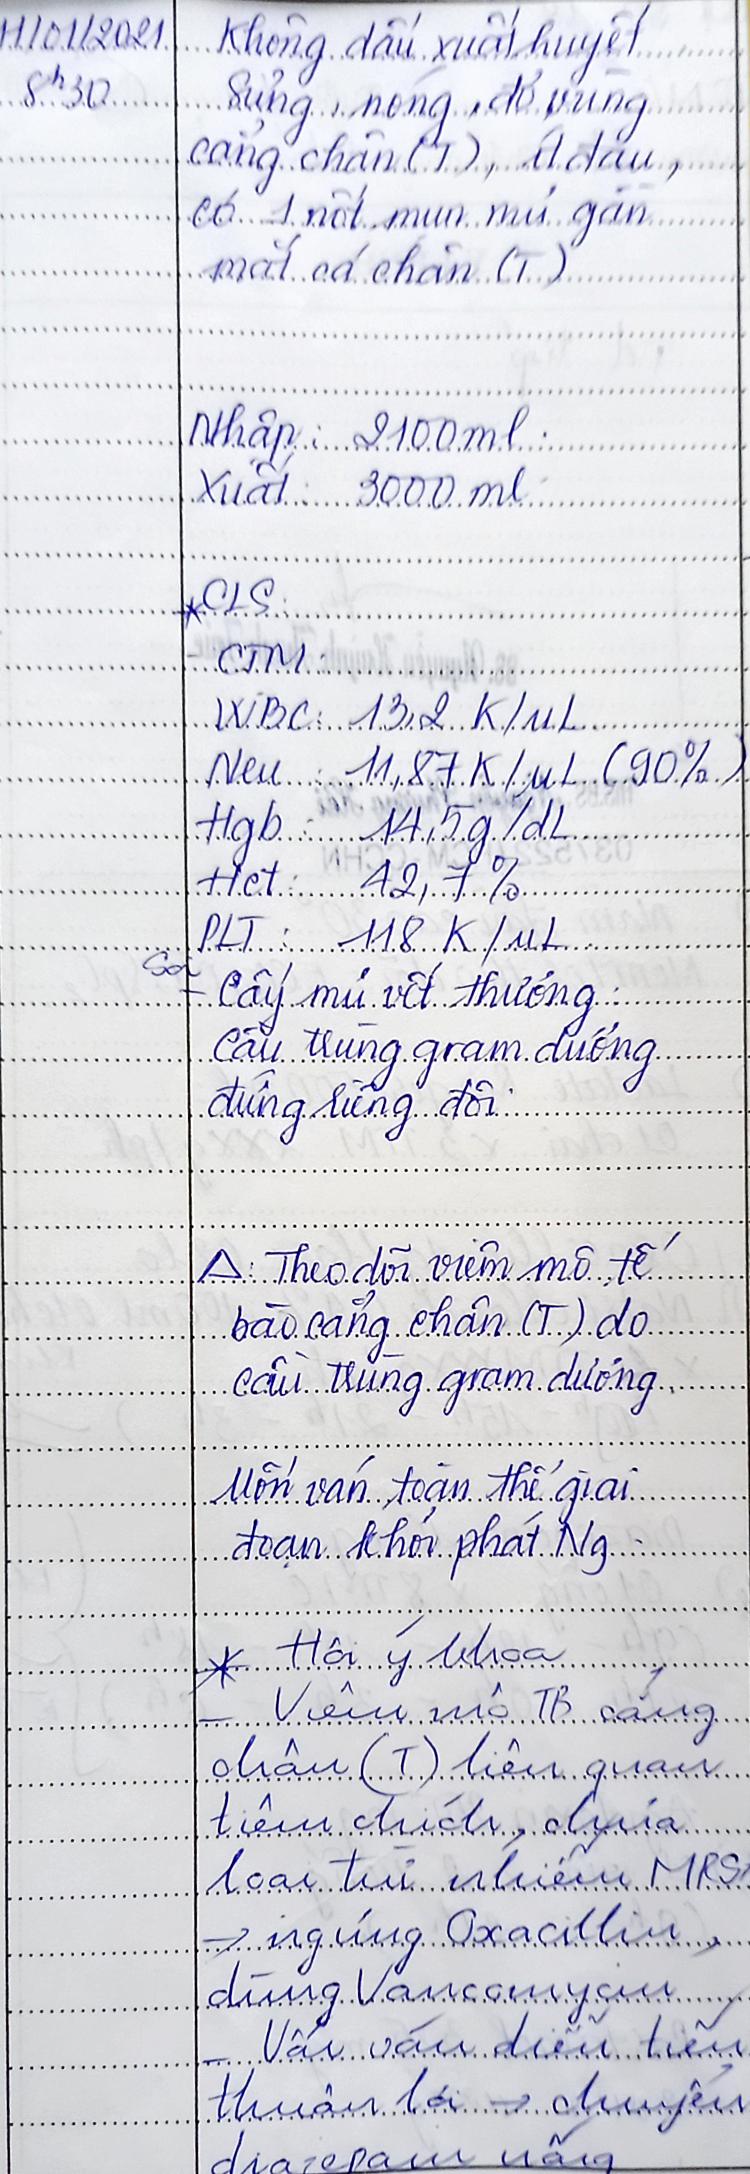 11/01/2021 Không dấu xuất huyết
8h30 Sưng, nóng, đỏ vùng
cẳng chân (T), ít đau,
có 1 nốt mụn mủ gần
mắt cá chân (T)
Nhập: 2100 ml
Xuất: 3000 ml
* CLS:
CTM:
WBC: 13,2 K/uL
Neu : 11,87 K/uL (90%)
Hgb : 14,5 g/dL
Hct : 42,7 %
PLT : 118 K/uL
Soi
- Cấy mủ vết thương:
Cầu trùng gram dương
đứng riêng đôi
Δ: Theo dõi viêm mô tế
bào cẳng chân (T) do
cầu trùng gram dương.
Uốn ván toàn thể giai
đoạn khởi phát Ng
* Hội ý khoa
- Viêm mô TB cẳng
chân (T) liên quan
tiêm chích, chưa
loại trừ nhiễm MRSA
→ ngưng Oxacillin,
dùng Vancomycin
- Uốn ván diễn tiến
thuận lợi → chuyển
diazepam uống